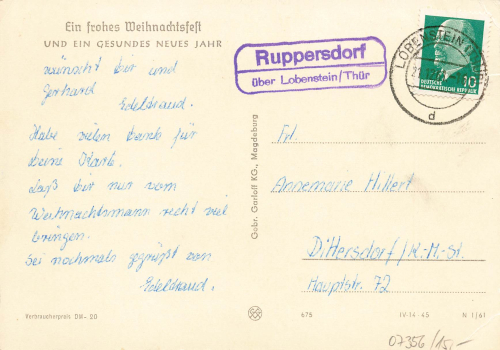 Ein frohes Weihnachtsfest
UND EIN GESUNDES NEUES JAHR
wünscht dir und
Gerhard
Edeltraud.
Habe vielen Dank für
Deine Karte.
Laß dir nur vom
Weihnachtsmann recht viel
bringen.
Sei nochmals gegrüßt von
Edeltraud.
Verbraucherpreis DM -20
Gebr. Garloff KG., Magdeburg
Ruppersdorf
über Lobenstein/Thür
LOBENSTEIN
d
10
DEUTSCHE
DEMOKRATISCHE REPUBLIK
Frl.
Annemarie Hillert
Dittersdorf/K.-M.-St.
Hauptstr. 72
675
IV-14-45
N 1/61
07356/15,-